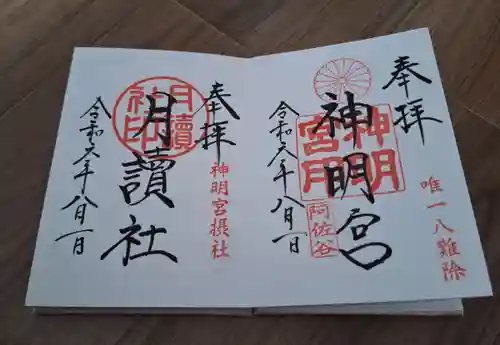 奉拝
唯一八難除
神明宮
神明
宮印
阿佐谷
令和六年八月一日
奉拝
神明宮摂社
月讀社
月讀
社印
令和六年八月一日